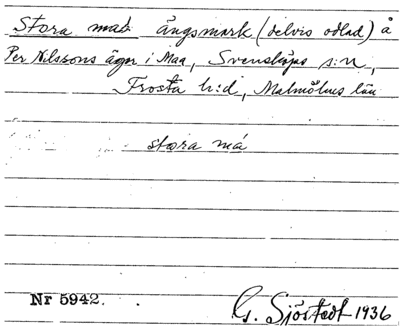 Stora mad: ängsmark (delvis odlad) å
Per Nilssons ägor i Maa, Svensköps s:n,
Frosta h:d, Malmöhus län
stora må
Nr 5942. G. Sjöstedt 1936